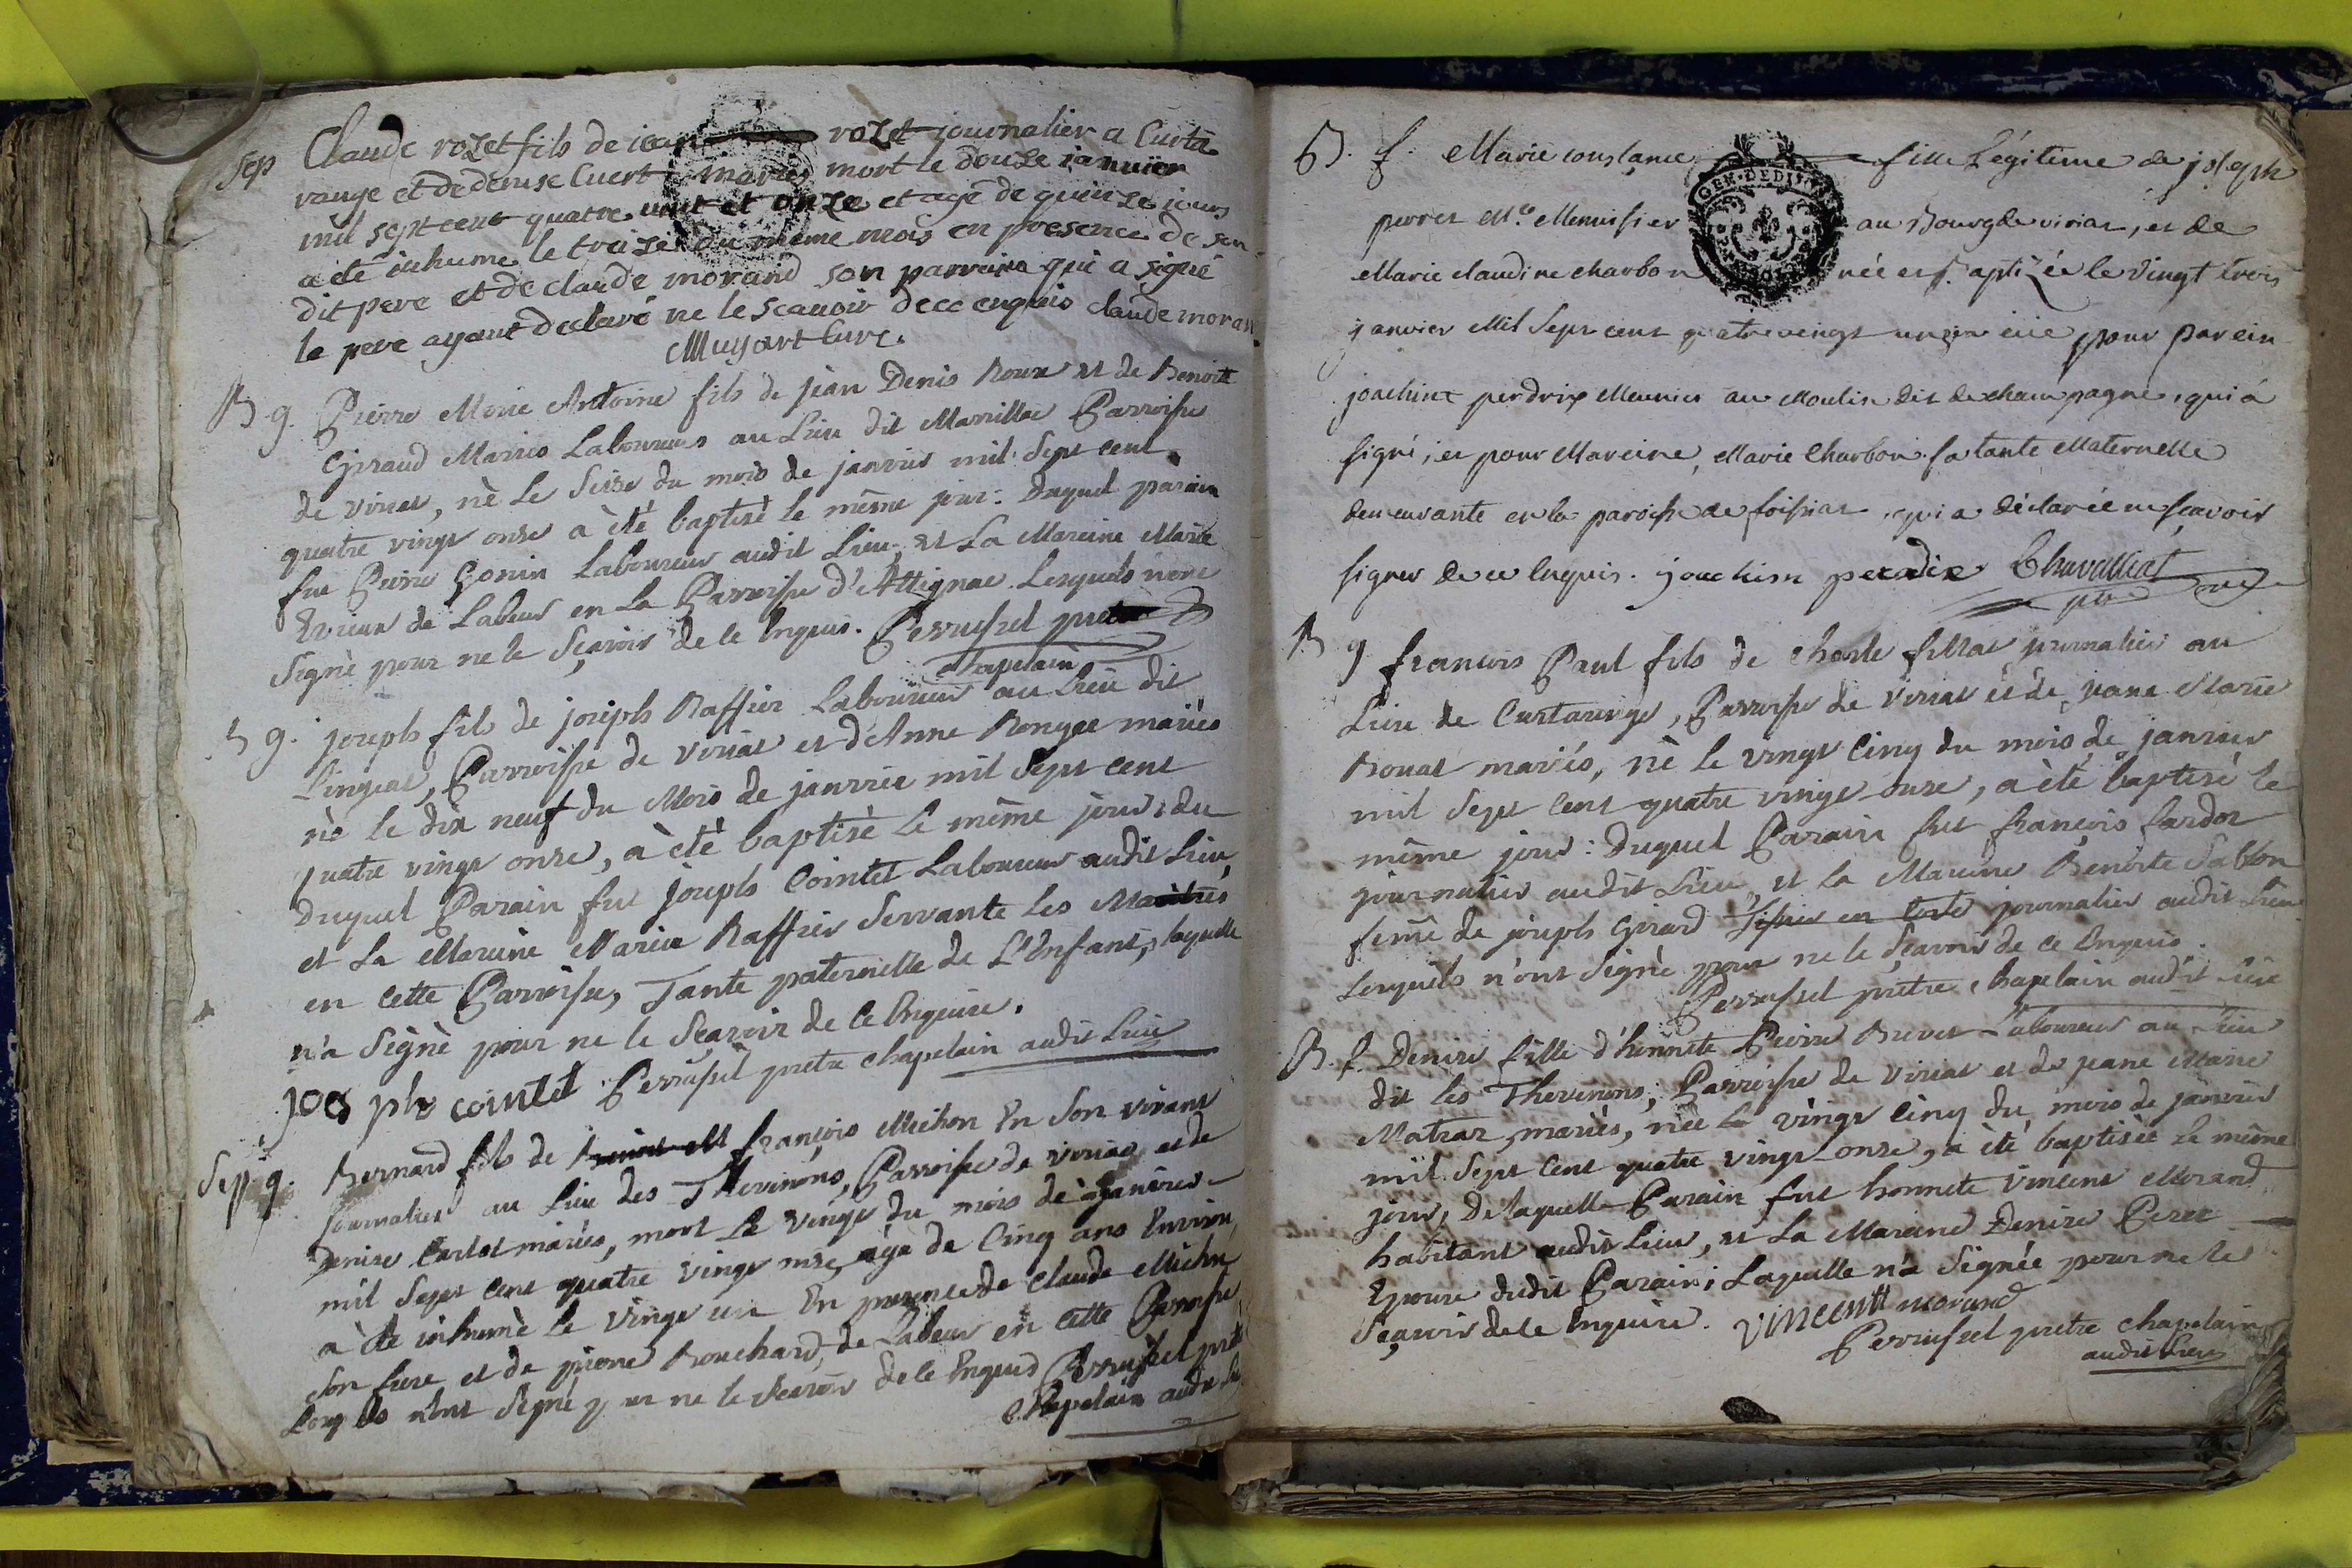 Sep Claude rozet fils de jean rozet journalier a Curta
range et de denise Cuert mariés mort le douze januier
mil sept cent quatre vint et onze et agé de quinze jours
a été inhumé le treize du meme mois en presence de son
dit pere et de claude morand son parrain qui a signé
le pere ayant declaré ne le scauoir de ce enquis claude moran
Curé.
B g. Pierre Marie Antoine fils de jean Denis Roux et de Benoite
Giraud Mariés Laboureurs au Lieu dit Marillac Parroisse
de viriat, nè le seize du mois de janvier mil sept cent
quatre vingt onze a èté baptisè le même jour: Duquel parain
fut Pierre Gonin Laboureur audit Lieu, et La Mareine Marie
Evieux de Labeur en La Parroisse d'Attignac. Lesquels n'ont
Signè pour ne le Sçavoir de ce Enquis. Perrussel pretre
chapelain
B g. joseph fils de joseph Raffier Laboureur au Lieu dit
Lingeat, Parroisse de viriat et d'Anne Rongee mariés
nè le dix neuf du Mois de janvier mil sept cent
quatre vingt onze, à èté baptisè Le même jour: du
Duquel Parain fut joseph Cointet Laboureur audit Lieu,
et La Mareine Marie Raffier Servante Les Maitres
en cette Parroisse, Tante paternelle de L'Enfant, laquelle
n'a Signè pour ne le Sçavoir de ce Enquise.
joes ph cointet Perrussel pretre chapelain audit Lieu
Sep. g. Bernard fils de françois Michon En Son vivant
journalier au Lieu des Thevenons, Parroisse de viriat et de
Denise Carlet mariés, mort Le vingt du mois de janvier
mil sept cent quatre vingt onze, agé de Cinq ans Environ,
a èté inhumè Le vingt un En presence de Claude Michon
son frere et de pierre Bouchard, de Labeur en cette Parroisse
Lesquels n'ont Signé pour ne le Sçavoir de ce Enquis Perrussel pretre
Chapelain audit Lieu
B. f. Marie constance fille Légitime de joseph
perret Me. Menuisier au Bourg de viriat, et de
Marie claudine charbon née et Baptizée le vingt trois
janvier Mil Sept cent quatre vingt onze eüe pour parein
joachint perdrix Meunier au Moulin dit de champagne, qui a
signé, et pour Mareine, Marie Charbon sa tante Maternelle
demeurante en la paroisse de foissiat, qui a déclarée ne scavoir
signer de ce Enquis. joachim perdix Chavalliat
ptre
B g françois Paul fils de Charle fillat journalier au
Lieu de Curtarange, Parroisse de viriat et de jeane Marie
Rouat mariés, nè le vingt Cinq du mois de janvier
mil Sept Cent quatre vingt onze, a èté baptisè le
même jour: Duquel Parain fut françois fardot
journalier audit Lieu, et la Mareine Benoite Sablon
feme de joseph Girard journalier audit Lieu
Lesquels n'ont Signè pour ne le Sçavoir de ce Enquis.
Perrussel pretre chapelain audit Lieu
B. f. Denise fille d'honnete Pierre Brevet Laboureur au Lieu
dit les Thevenons, Parroisse de viriat et de jeane Marie
Matraz, mariés, née Le vingt Cinq du mois de janvier
mil Sept Cent quatre vingt onze, a èté baptisèe Le même
jour, De laquelle Parain fut honnete vincent Morand
habitant audit Lieu, et La Mareine Denise Peret
Epouse dudit Parain; Laquelle n'a Signée pour ne le
Sçavoir de ce Enquise. vincentt morand
Perrussel pretre chapelain
audit Lieu